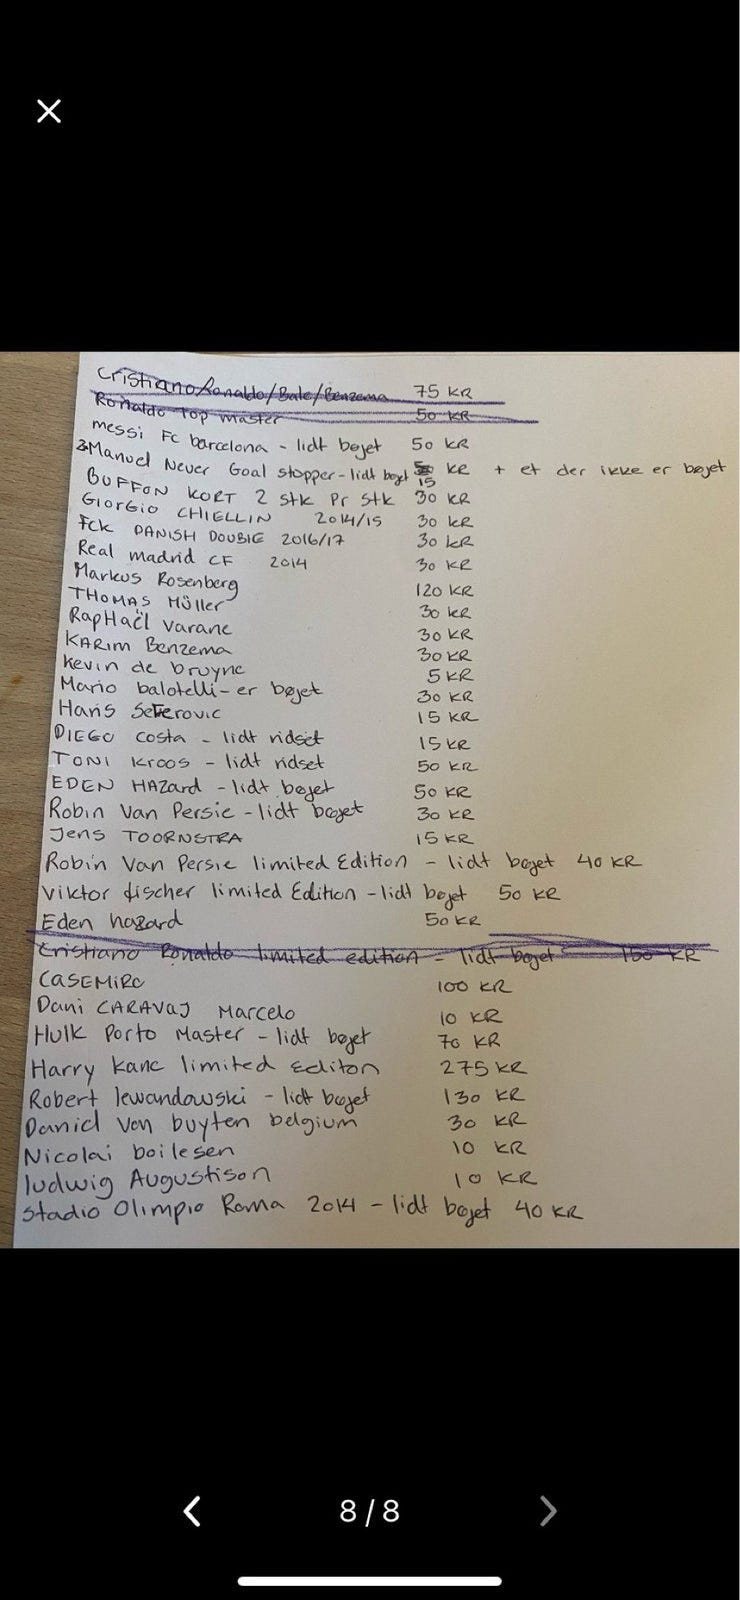 Cristiano Ronaldo/Bale/Benzema 75 KR
Ronaldo top master 50 KR
messi Fc barcelona - lidt bøjet 50 KR
Manuel Never Goal stopper - lidt bøjet 15 KR + et der ikke er bøjet
BUFFON KORT 2 stk Pr stk 30 KR
GIORGIO CHIELLIN 2014/15 30 KR
Fck DANISH DOUBLE 2016/17 30 KR
Real madrid CF 2014 30 KR
Markus Rosenberg 120 KR
THOMAS Müller 30 KR
RapHaël Varane 30 KR
KARIM Benzema 30 KR
Kevin de bruyne 5 KR
Mario balotelli - er bøjet 30 KR
Haris Seferovic 15 KR
DIEGO costa - lidt ridset 15 KR
TONI Kroos - lidt ridset 50 KR
EDEN HAZard - lidt bøjet 50 KR
Robin Van Persie - lidt bøjet 30 KR
Jens TOORNSTRA 15 KR
Robin Van Persie limited Edition - lidt bøjet 40 KR
Viktor fischer limited Edition - lidt bøjet 50 KR
Eden hazard 50 KR
Cristiano Ronaldo limited edition - lidt bøjet 150 KR
CASEMIRO 100 KR
Dani CARAVAJ Marcelo 10 KR
Hulk Porto Master - lidt bøjet 70 KR
Harry kane limited Editon 275 KR
Robert lewandowski - lidt bøjet 130 KR
Daniel van buyten belgium 30 KR
Nicolai boilesen 10 KR
ludwig Augustison 10 KR
Stadio Olimpio Roma 2014 - lidt bøjet 40 KR
8/8